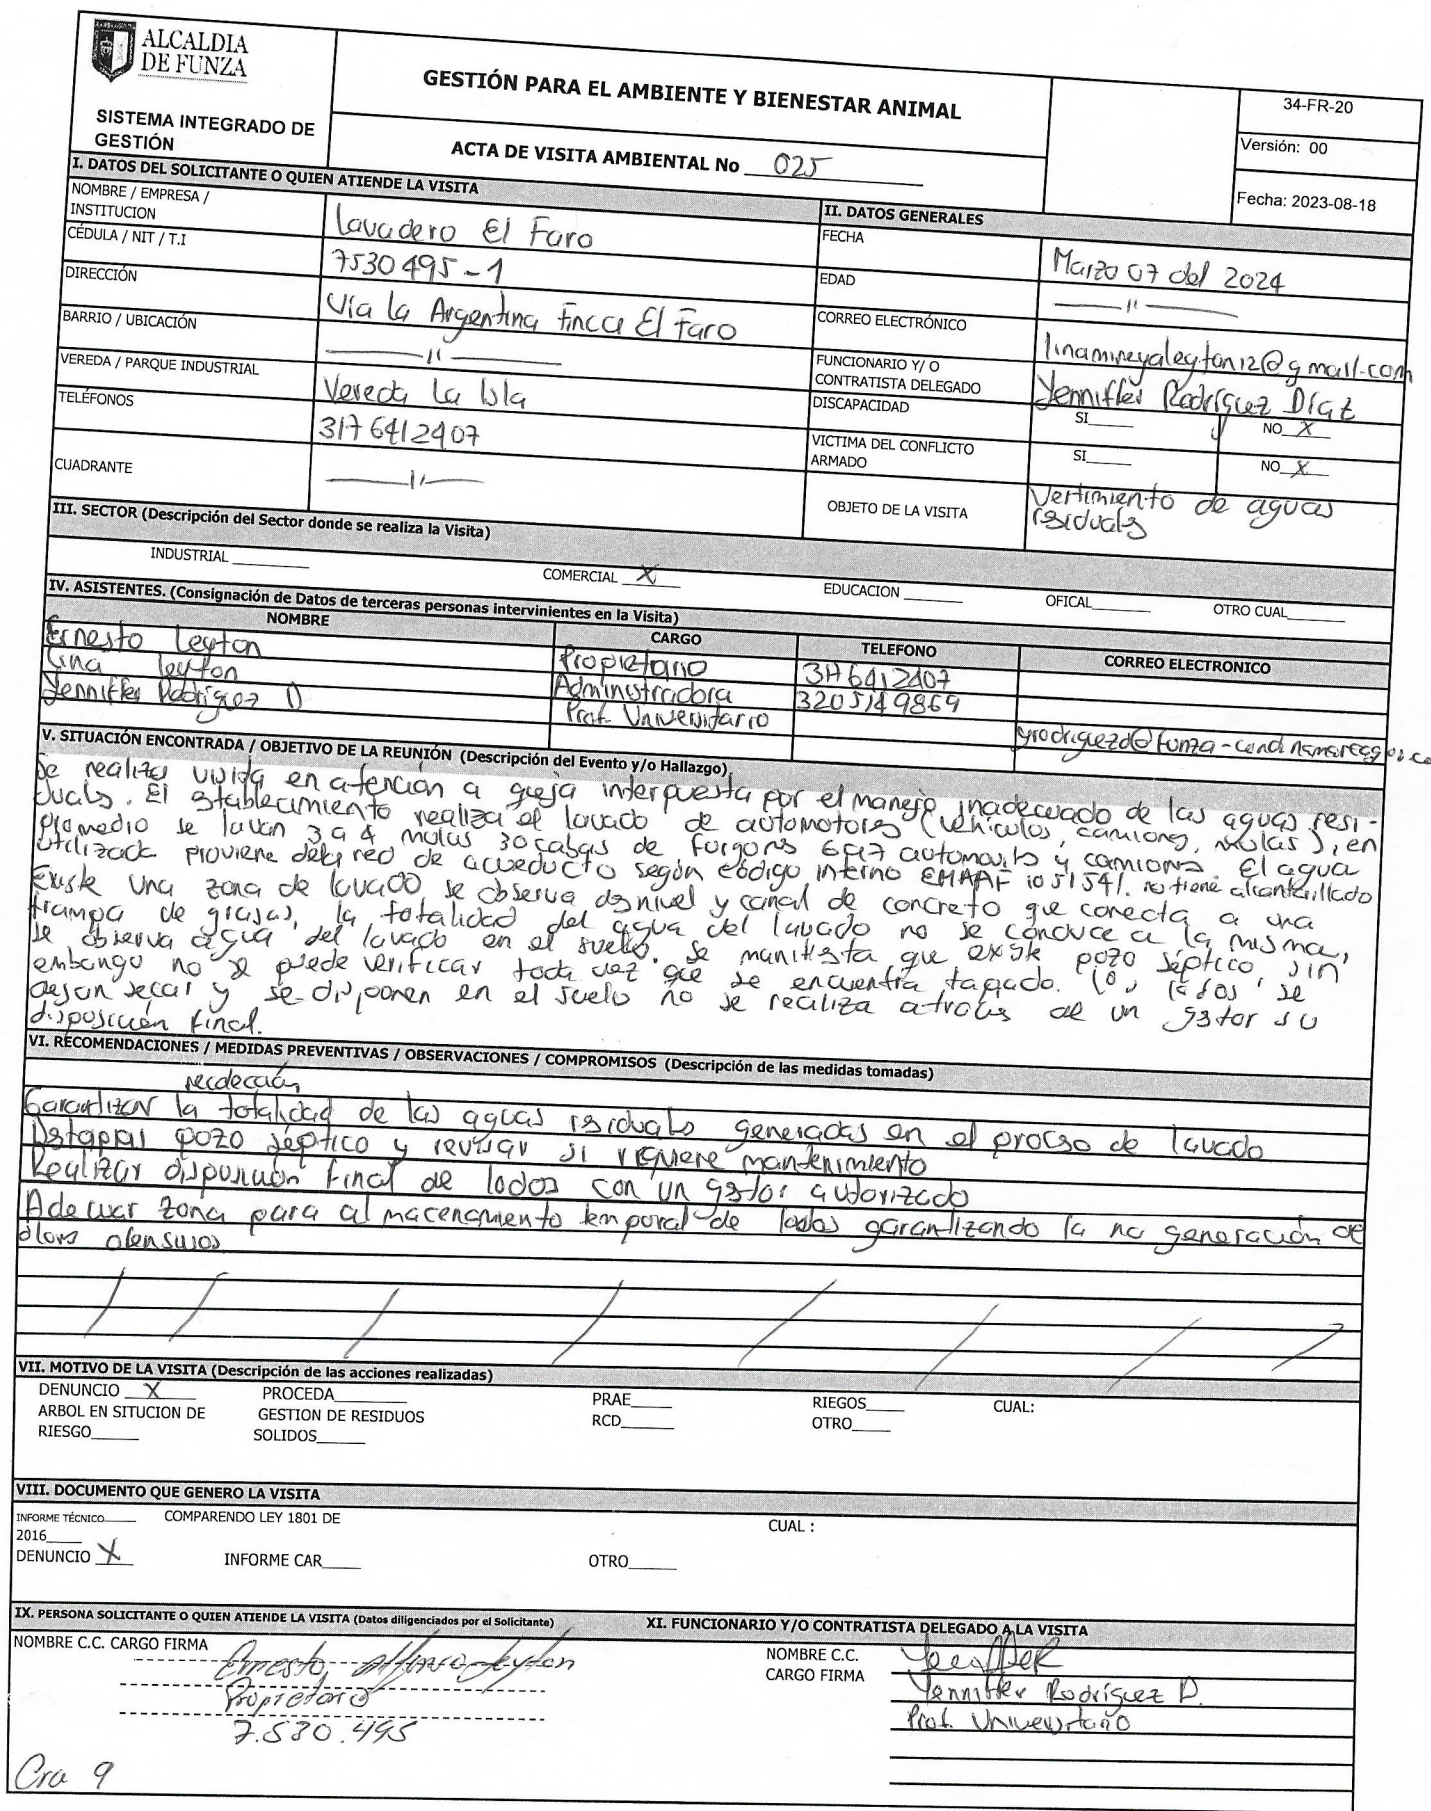 ALCALDIA
DE FUNZA
SISTEMA INTEGRADO DE
GESTIÓN
GESTIÓN PARA EL AMBIENTE Y BIENESTAR ANIMAL
ACTA DE VISITA AMBIENTAL No 025
34-FR-20
Versión: 00
Fecha: 2023-08-18
I. DATOS DEL SOLICITANTE O QUIEN ATIENDE LA VISITA
NOMBRE / EMPRESA /
INSTITUCION
lavadero El Faro
CÉDULA / NIT / T.I
7530495-1
DIRECCIÓN
Via la Argentina Finca El Faro
BARRIO / UBICACIÓN
—11—
VEREDA / PARQUE INDUSTRIAL
Vereda La Isla
TELÉFONOS
317 6412407
CUADRANTE
—11—
II. DATOS GENERALES
FECHA
Marzo 07 del 2024
EDAD
—11—
CORREO ELECTRÓNICO
linamireyaleyton12@gmail.com
FUNCIONARIO Y/ O
CONTRATISTA DELEGADO
Yenniffer Rodríguez Díaz
DISCAPACIDAD
SI____ NO X
VICTIMA DEL CONFLICTO
ARMADO
SI____ NO X
OBJETO DE LA VISITA
Vertimiento de aguas
residuals
III. SECTOR (Descripción del Sector donde se realiza la Visita)
INDUSTRIAL ____ COMERCIAL X EDUCACION ____ OFICAL____ OTRO CUAL____
IV. ASISTENTES. (Consignación de Datos de terceras personas intervinientes en la Visita)
NOMBRE CARGO TELEFONO CORREO ELECTRONICO
Ernesto Leyton Propietario 3176412407
Lina leyton Administradora 3205149869
Yenniffer Rodríguez D Prof. Universitario yrodriguezd@funza-cundinamarca.gov.co
V. SITUACIÓN ENCONTRADA / OBJETIVO DE LA REUNIÓN (Descripción del Evento y/o Hallazgo)
Se realiza visita en atención a queja interpuesta por el manejo inadecuado de las aguas resi-
duals. El establecimiento realiza el lavado de automotores (vehículos, camions, mulas), en
promedio se lavan 3 a 4 mulas 30 cabas de furgons 6 a 7 automovils y camions. El agua
utilizada proviene de la red de acueducto según código interno EMAAF 1051541. no tiene alcantarillado
Existe una zona de lavado se observa desnivel y canal de concreto que conecta a una
trampa de grasas, la totalidad del agua del lavado no se conduce a la misma,
se observa agua del lavado en el suelo. se manifiesta que existe pozo séptico, sin
embargo no se puede verificar toda vez que se encuentra tapado. los lodos se
dejan secar y se disponen en el suelo no se realiza a través de un gestor su
disposición final.
VI. RECOMENDACIONES / MEDIDAS PREVENTIVAS / OBSERVACIONES / COMPROMISOS (Descripción de las medidas tomadas)
recolección
Garantizar la totalidad de las aguas residuals generadas en el proceso de lavado
Destapar pozo séptico y revisar si requiere mantenimiento
Realizar disposición final de lodos con un gestor autorizado
Adecuar zona para almacenamiento temporal de lodos garantizando la no generación de
olors ofensivos
VII. MOTIVO DE LA VISITA (Descripción de las acciones realizadas)
DENUNCIO X PROCEDA____ PRAE____ RIEGOS____ CUAL:
ARBOL EN SITUCION DE GESTION DE RESIDUOS RCD____ OTRO____
RIESGO____ SOLIDOS____
VIII. DOCUMENTO QUE GENERO LA VISITA
INFORME TÉCNICO____ COMPARENDO LEY 1801 DE CUAL :
2016____
DENUNCIO X INFORME CAR____ OTRO____
IX. PERSONA SOLICITANTE O QUIEN ATIENDE LA VISITA (Datos diligenciados por el Solicitante)
NOMBRE C.C. CARGO FIRMA
Ernesto Alfonso Leyton
Propietario
7.530.495
Cra 9
XI. FUNCIONARIO Y/O CONTRATISTA DELEGADO A LA VISITA
NOMBRE C.C.
CARGO FIRMA
Yenniffer Rodríguez D.
Prof. Universitario